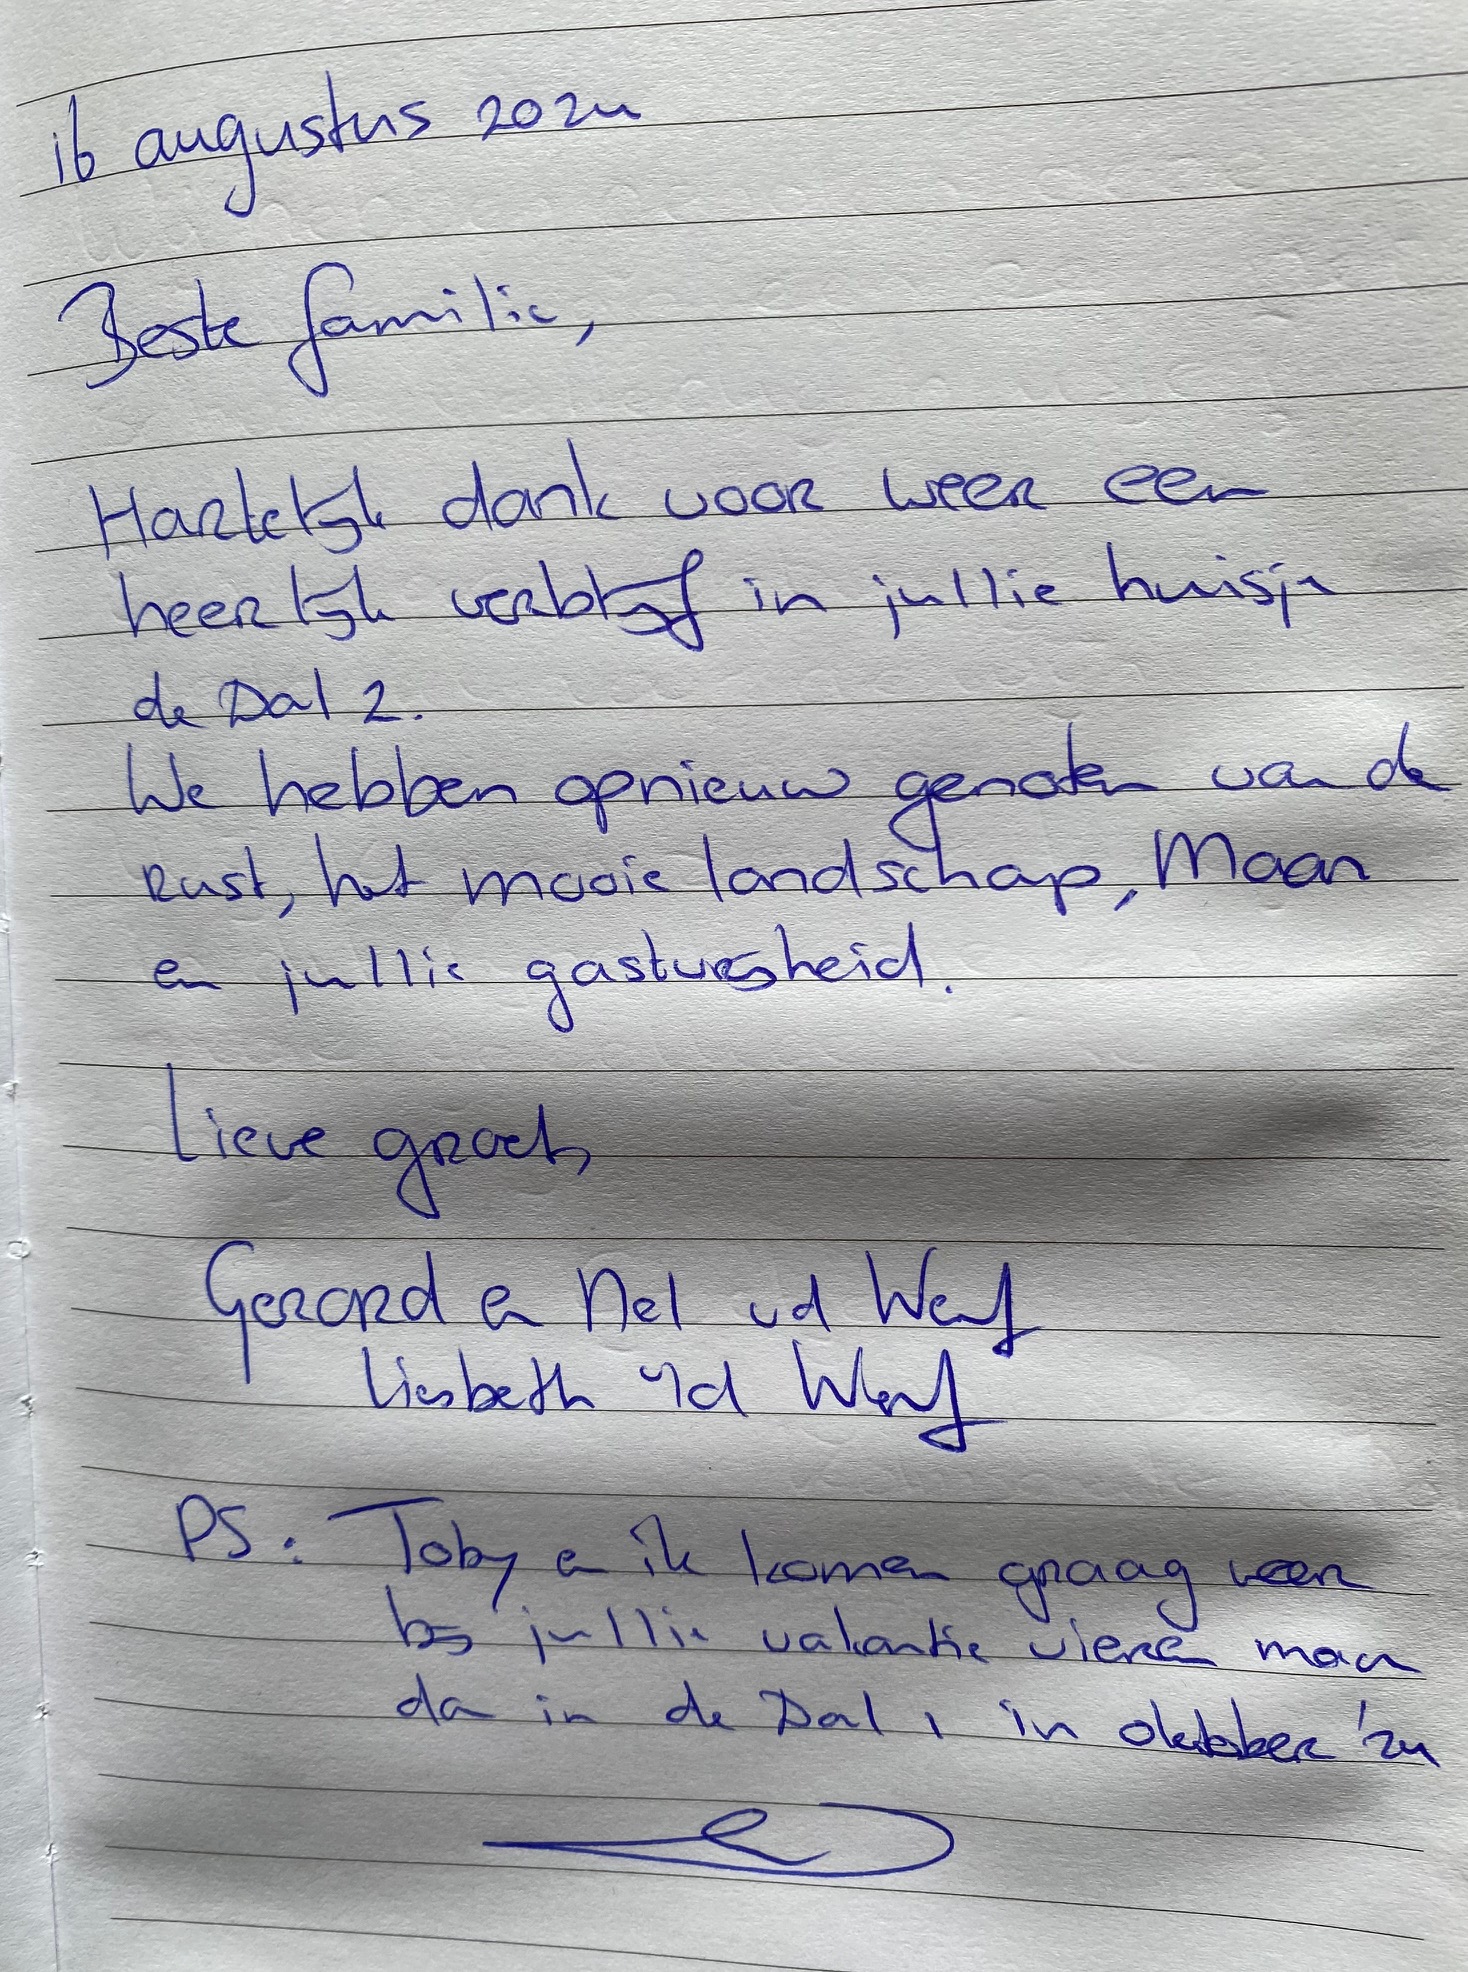 16 augustus 2024
Beste familie,
Hartelijk dank voor weer een
heerlijk verblijf in jullie huisje
de Dal 2.
We hebben opnieuw genoten van de
rust, het mooie landschap, Maan
en jullie gastvrijheid.
Lieve groet,
Gerard en Nel vd Werf
Liesbeth v/d Werf
PS: Toby en ik komen graag weer
bij jullie vakantie vieren maar
dan in de Dal 1 in oktober '24